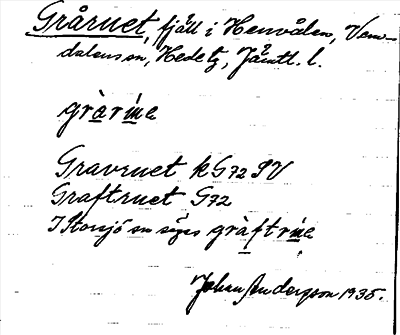 Gråruet, fjäll i Henvålen, Vem-
dalens sn, Hede tg, Jämtl. l.
gràrúe
Gravruet k G72 SV
Graftruet G72
I Storsjö sn säges gràftrúe
Johan Andersson 1935.